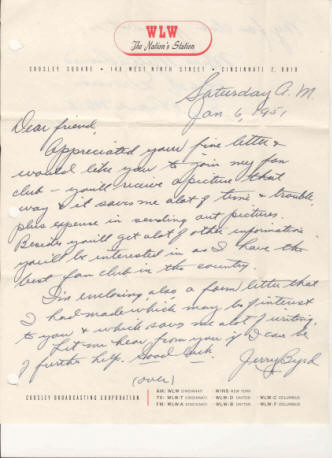 WLW
The Nation's Station
CROSLEY SQUARE • 140 WEST NINTH STREET • CINCINNATI 2, OHIO
Saturday A.M.
Jan. 6, 1951
Dear friend,
Appreciated your fine letter &
would like you to join my fan
club - you'll receive a picture that
way & it saves me alot of time & trouble,
plus expense in sending out pictures.
Besides you'll get alot of other information
you'll be interested in as I have the
best fan club in the country.
I'm enclosing also a form letter that
I had made which may be of interest
to you & which saves me alot of writing.
Let me hear from you if I can be
of further help. Good luck.
Jerry Byrd
(over)
CROSLEY BROADCASTING CORPORATION
AM: WLW CINCINNATI • WINS NEW YORK
TV: WLW-T CINCINNATI • WLW-D DAYTON • WLW-C COLUMBUS
FM: WLW-A CINCINNATI • WLW-B DAYTON • WLW-F COLUMBUS